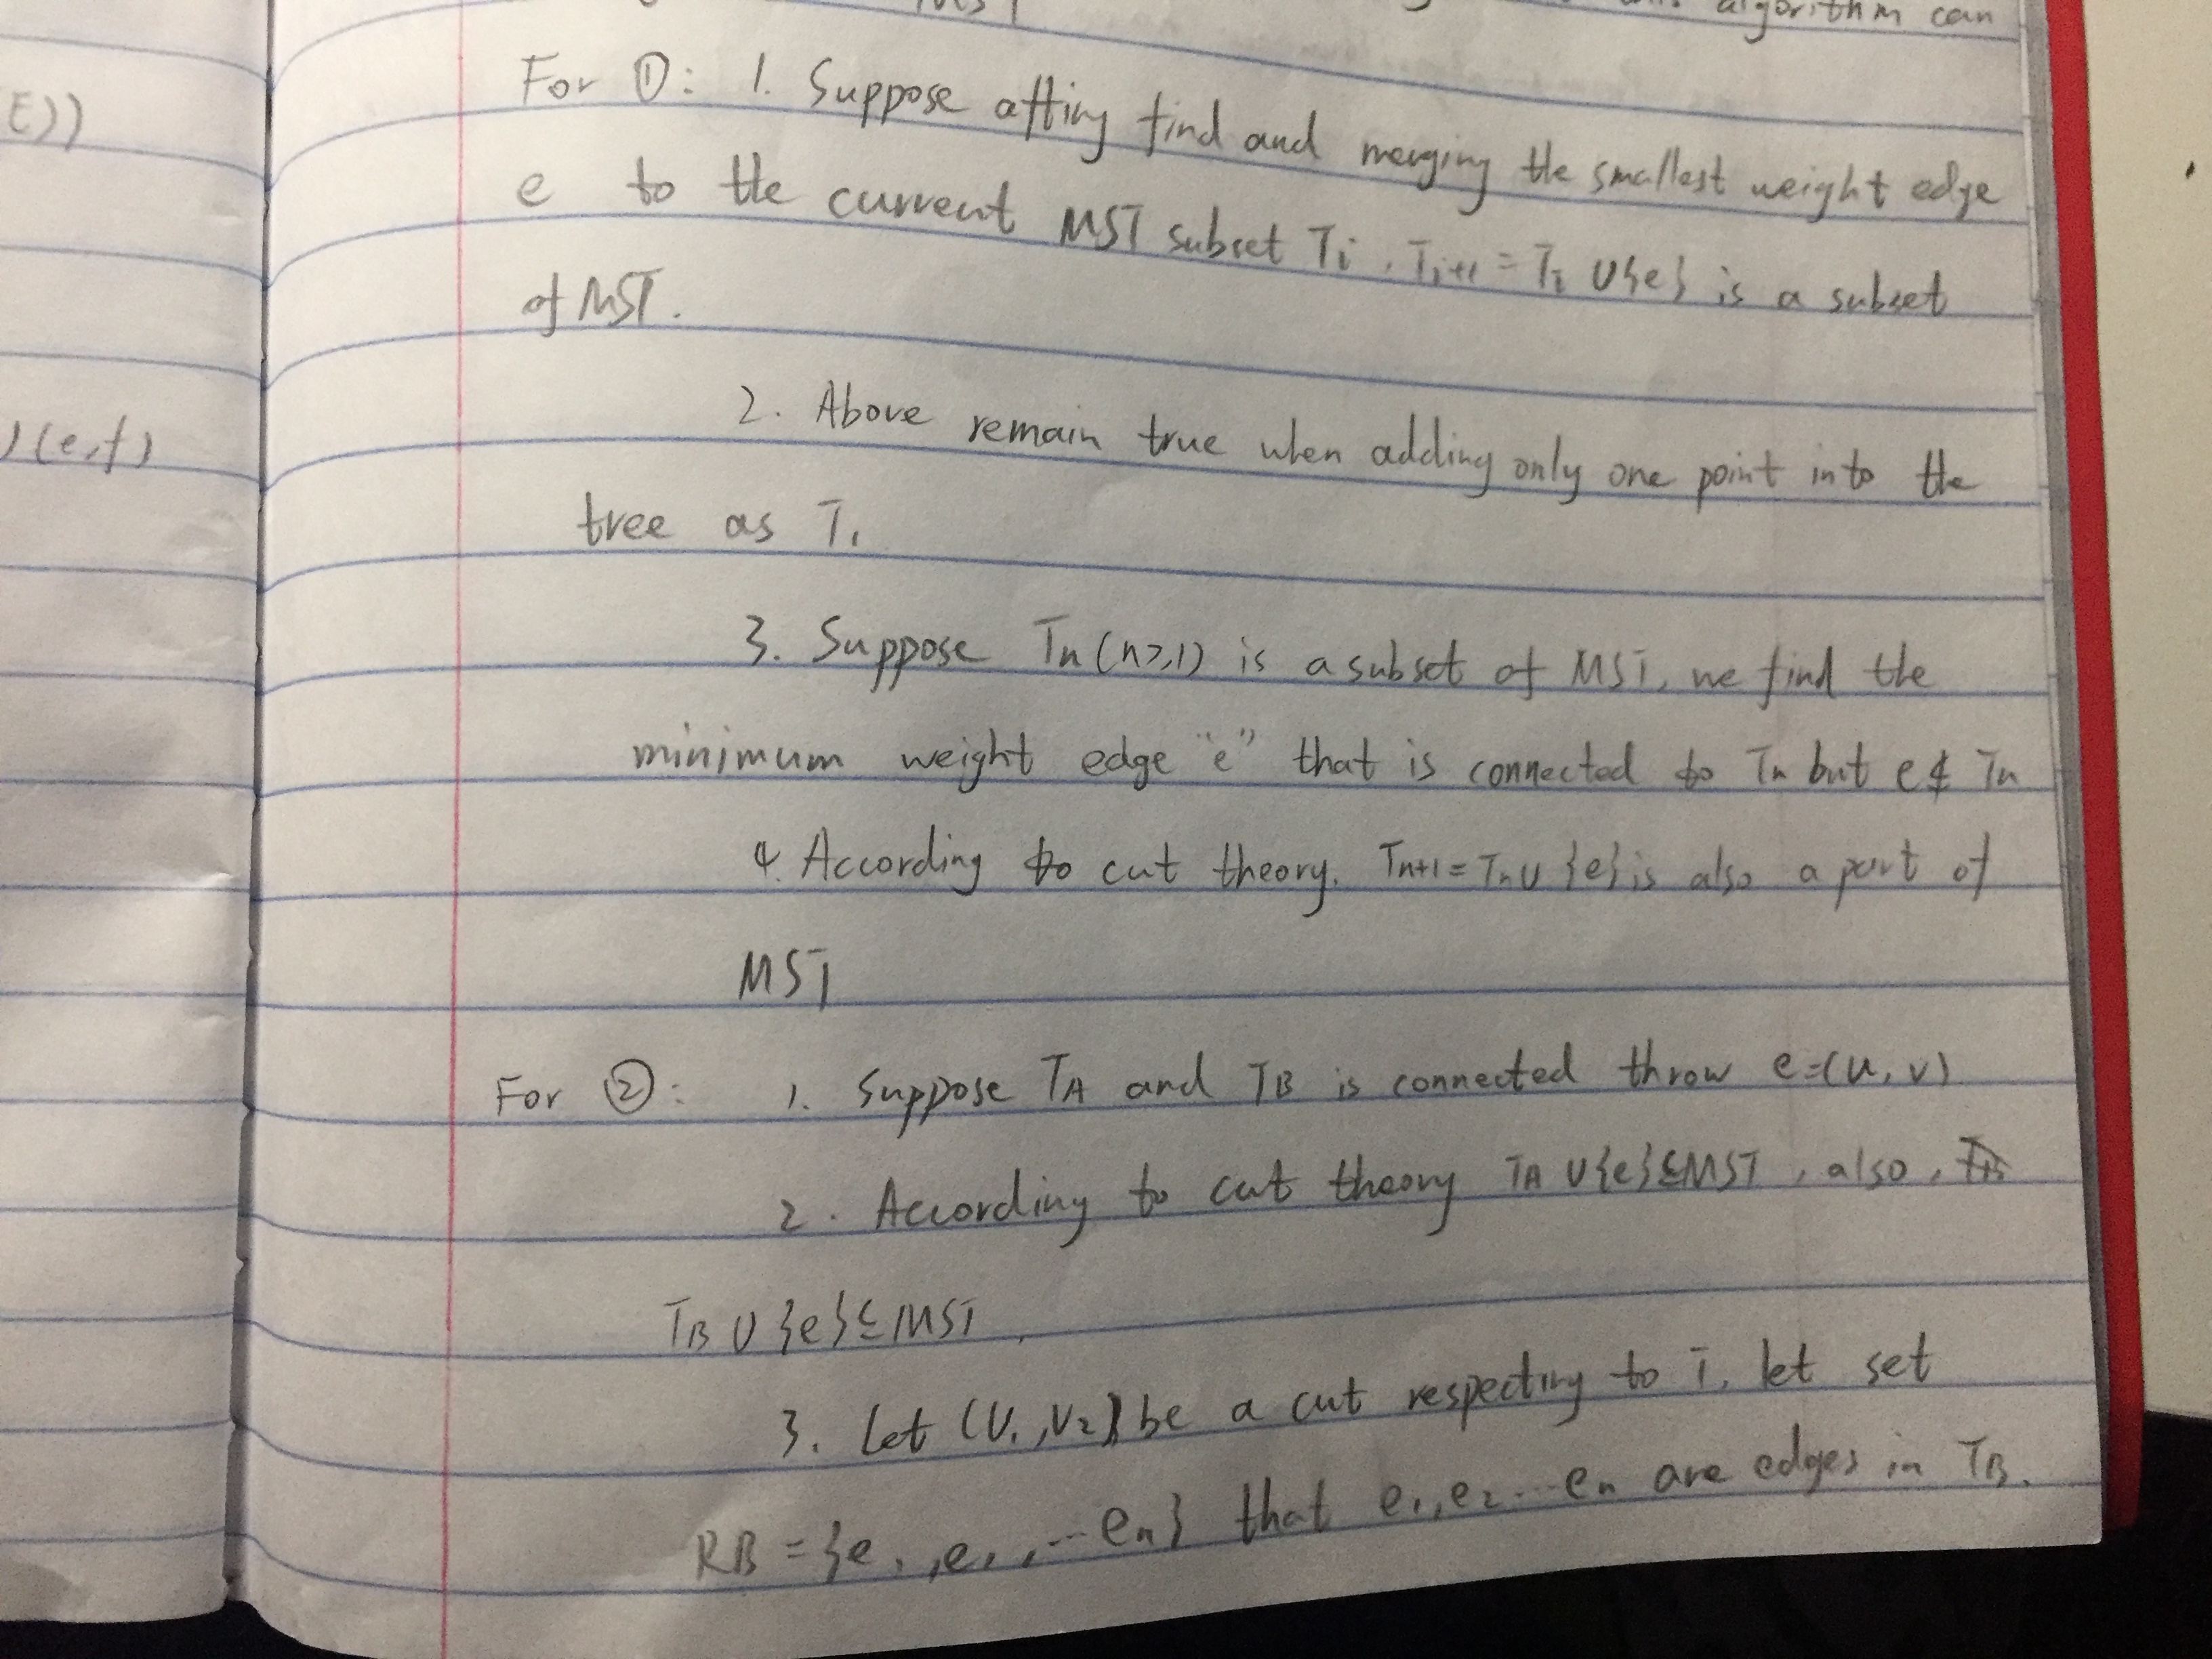 algorithm can
E))
) (e,f)
For ①: 1. Suppose afting find and merging the smallest weight edge
e to the current MST subset Ti. Ti+1 = Ti ∪{e} is a subset
of MST.
2. Above remain true when adding only one point into the
tree as T1
3. Suppose Tn (n≥1) is a subset of MST, we find the
minimum weight edge "e" that is connected to Tn but e∉ Tn
4. According to cut theory. Tn+1 = Tn ∪ {e} is also a part of
MST
For ②: 1. Suppose TA and TB is connected throw e=(u, v)
2. According to cut theory TA ∪{e}⊆MST, also,
TB ∪ {e}⊆MST,
3. Let (V1, V2) be a cut respecting to T, let set
RB = {e1, e2, ... en} that e1, e2 ... en are edges in TB.